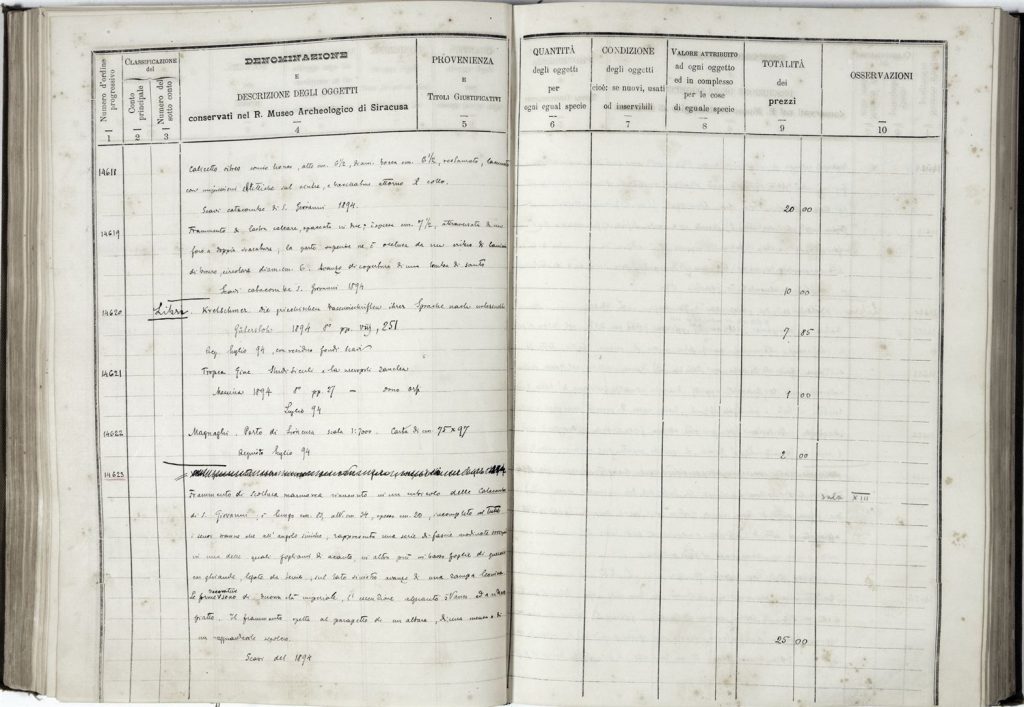 Numero d'ordine progressivo
CLASSIFICAZIONE del
Conto principale
Numero del sotto conto
DENOMINAZIONE
E
DESCRIZIONE DEGLI OGGETTI
conservati nel R. Museo Archeologico di Siracusa
PROVENIENZA
E
TITOLI GIUSTIFICATIVI
QUANTITÀ
degli oggetti
per
ogni egual specie
CONDIZIONE
degli oggetti
cioè: se nuovi, usati
od inservibili
VALORE ATTRIBUITO
ad ogni oggetto
ed in complesso
per le cose
di eguale specie
TOTALITÀ
dei
prezzi
OSSERVAZIONI
1 2 3 4 5 6 7 8 9 10
14618 alto cm. 6 1/2, diam. bocca cm. 6 1/2, restaurato,
sul ventre, e attorno il collo.
Scavi catacombe di S. Giovanni 1894. 20 00
14619 Frammento di lastra calcare, spessa cm. 7 1/2, attraversata da un
foro a doppia, la parte superiore ne è da un
di bronzo, circolare diam. cm. 6. Avanzo di copertura di una tomba di santo
Scavi catacombe S. Giovanni 1894 10 00
14620 Libri. Kretschmer. Die griechischen Vaseninschriften ihrer Sprache nach untersucht
Gütersloh 1894 8° pp. viij, 251 7 85
Acq. luglio 94, con residuo fondi scavi
14621 Tropea Gius. Studi Siculi e la necropoli zanclea
Messina 1894 8° pp. 27 — dono 1 00
Luglio 94
14622 Magnaghi. Porto di Siracusa scala 1:7000. Carta di cm 75 x 97
Acquisto luglio 94 2 00
14623
Frammento di scultura marmorea rinvenuto in un cubicolo delle Catacombe sala XIII
di S. Giovanni, è lungo cm. alt. cm. 34, spesso cm. 20, incompleto da tutti
i sensi che all'angolo, rappresenta una serie di fascie
in una delle quali fogliami di acanto, in altra più in basso foglie di quercia
con ghiande, legate da, sul lato sinistro avanzo di una zampa leonina.
Le forme decorative sono di buona età imperiale, l'esecuzione alquanto
Il frammento spetta al parapetto di un altare, di una mensa o di
un ragguardevole sepolcro. 25 00
Scavi del 1894